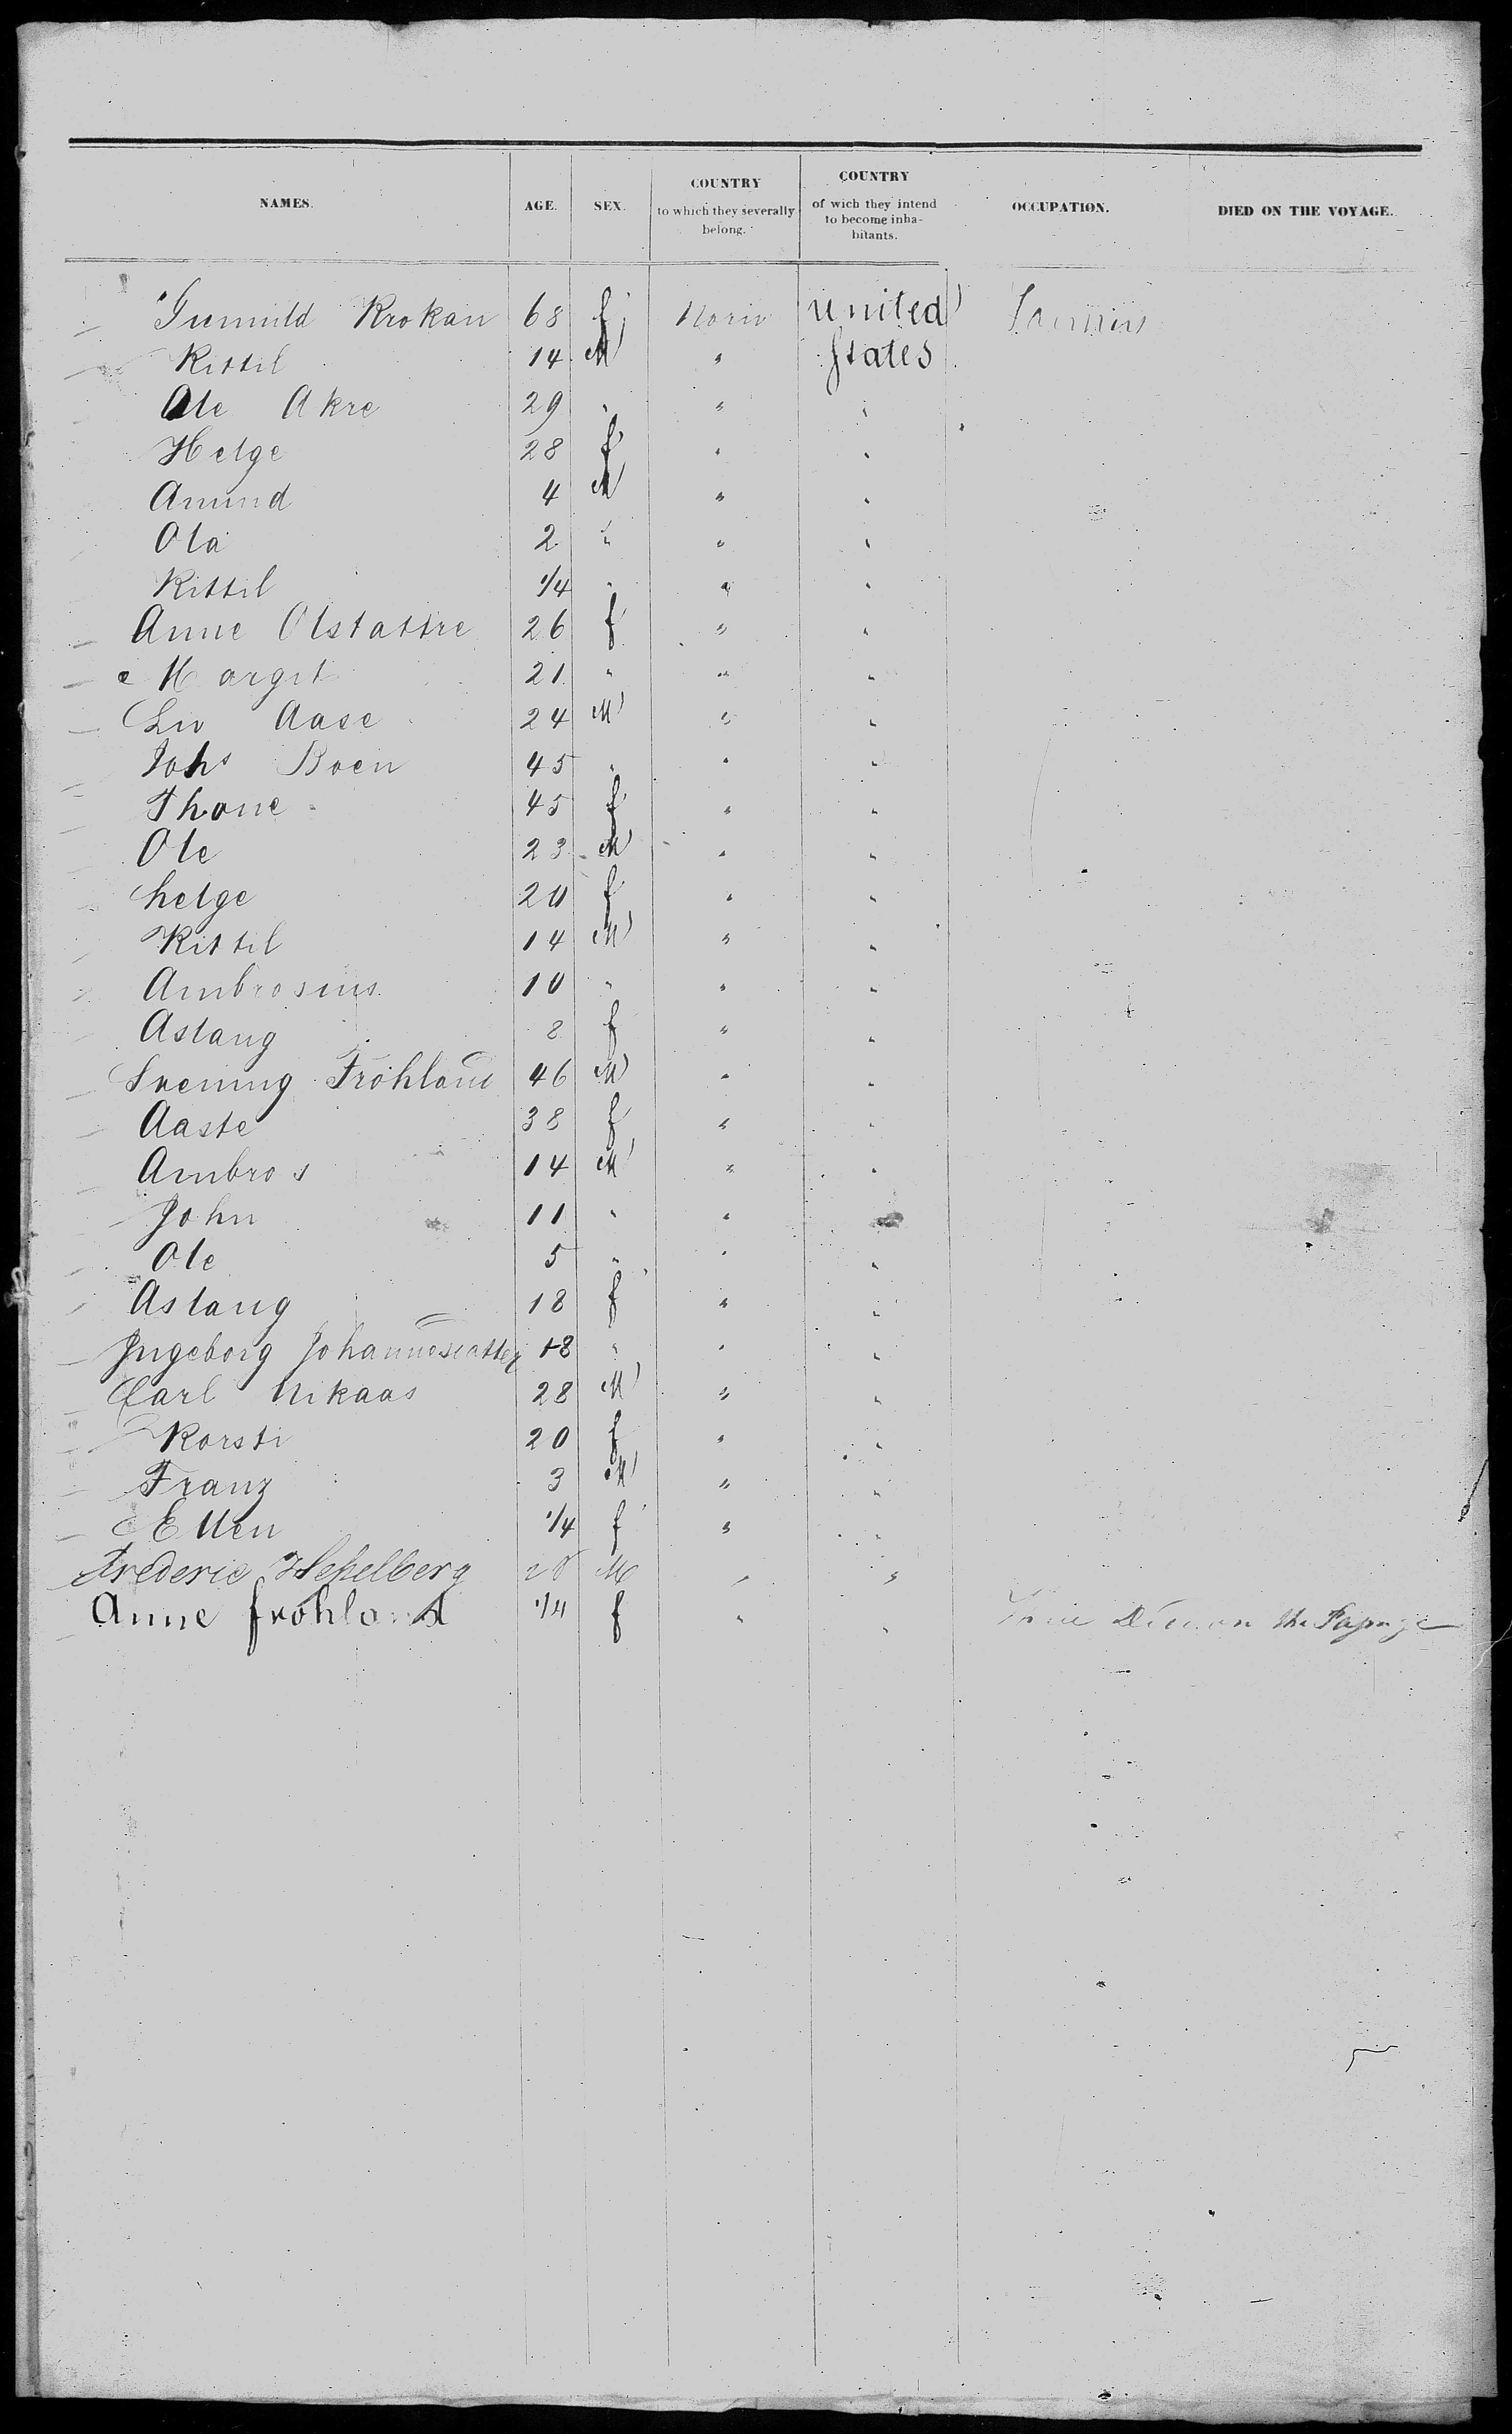 NAMES. AGE. SEX. COUNTRY to which they severally belong. COUNTRY of wich they intend to become inhabitants. OCCUPATION. DIED ON THE VOYAGE.
Gunnild Krokan 68 f Norw united
Kittil 14 M " States
Ole Akre 29 " " "
Helge 28 f " "
Amund 4 M " "
Ola 2 " " "
Kittil 1/4 " " "
Anne Olstattre 26 f " "
Margit 21 " " "
Liv Aase 24 M " "
Johs Boen 45 " " "
Thone 45 f " "
Ole 23 M " "
helge 20 f " "
Kittil 14 M " "
Ambrosius 10 " " "
Aslaug 8 f " "
Svenung Fröhland 46 M " "
Aaste 38 f " "
Ambros 14 M " "
John 11 " " "
Ole 5 " " "
Aslaug 18 f " "
Ingeborg 18 " " "
Carl Nikaas 28 M " "
Korsti 20 f " "
Franz 3 M " "
Ellen 1/4 f " "
Frederic 20 M " "
Anne fröhland 1/4 f " " on the